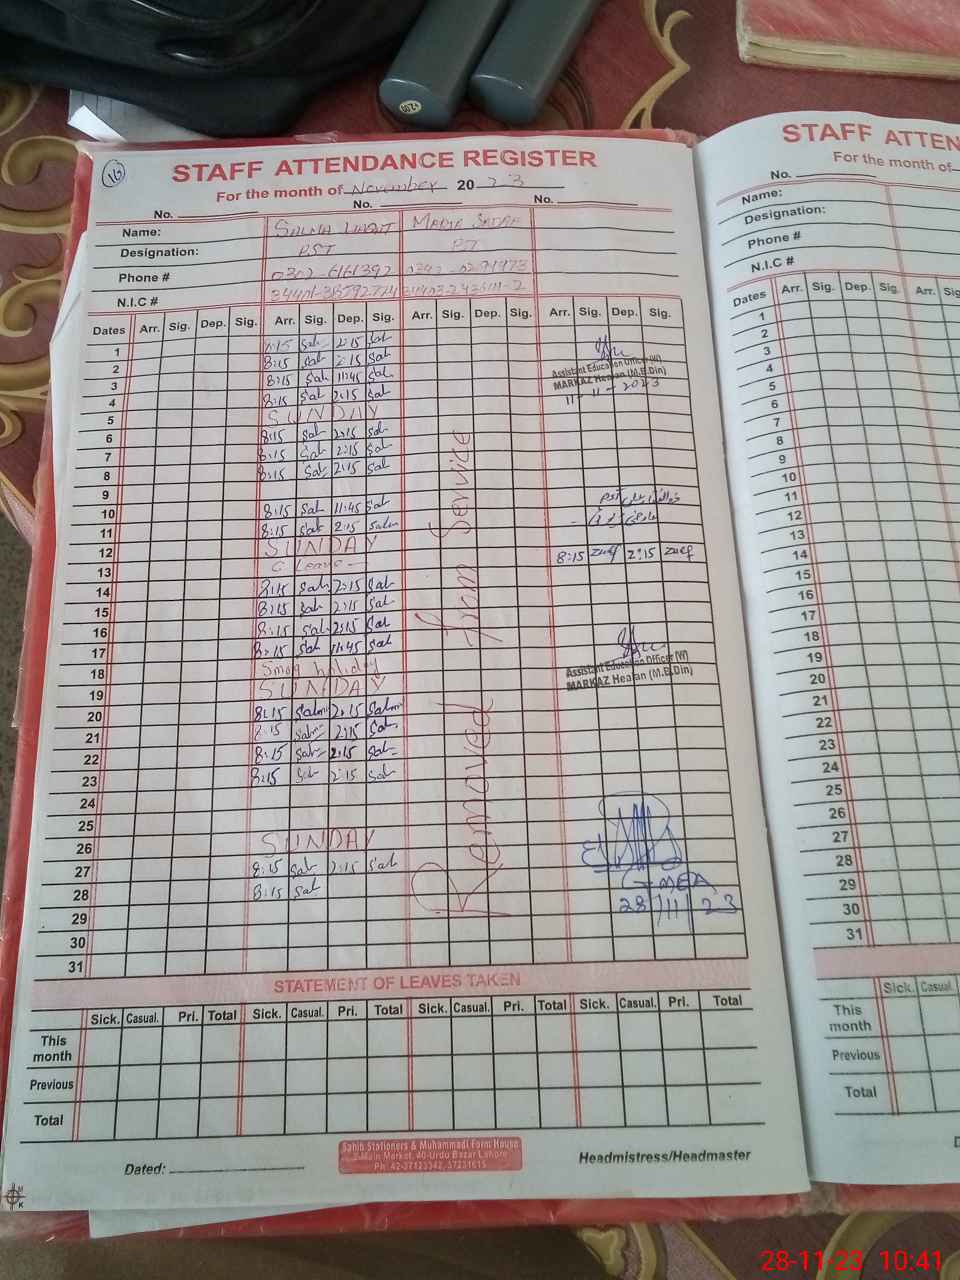 16
STAFF ATTENDANCE REGISTER
For the month of November 2023
No. No. No.
Name: SALMA
Designation: PST PST
Phone # 0302-6161392
N.I.C #
Dates Arr. Sig. Dep. Sig. Arr. Sig. Dep. Sig. Arr. Sig. Dep. Sig. Arr. Sig. Dep. Sig.
1 2:15 Sal
2 8:15 Sal 2:15 Sal
3 8:15 Sal 11:45 Sal
4 8:15 Sal 2:15 Sal
5 SUNDAY
6 8:15 Sal 2:15 Sal
7 8:15 Sal 2:15 Sal
8 8:15 Sal 2:15 Sal
9
10 8:15 Sal 11:45 Sal
11 8:15 Sal 2:15
12 SUNDAY
13 C Leave 
14 8:15 Sal 2:15 Sal
15 8:15 Sal 2:15 Sal
16 8:15 Sal 2:15 Sal
17 8:15 Sal 11:45 Sal
18 Smog holiday
19 SUNDAY
20 8:15 2:15
21 8:15 Sal 2:15 Sal
22 8:15 Sal 2:15 Sal
23 8:15 Sal 2:15 Sal
24
25
26 SUNDAY
27 8:15 Sal 2:15 Sal
28 8:15 Sal
29
30
31
Removed from Service
Assistant Education Officer (W)
MARKAZ (M.B.Din)
11-11-2023
PST
8:15 2:15
Assistant Education Officer (W)
MARKAZ (M.B.Din)
MEA
28/11/23
STATEMENT OF LEAVES TAKEN
Sick. Casual. Pri. Total Sick. Casual. Pri. Total Sick. Casual. Pri. Total Sick. Casual. Pri. Total
This month
Previous
Total
Sahib Stationers & Muhammadi Form House
2-Main Market, 40-Urdu Bazar Lahore
Ph: 42-37123342, 37231615
Dated:
Headmistress/Headmaster
STAFF ATTEN
For the month of
No.
Name:
Designation:
Phone #
N.I.C #
Dates Arr. Sig. Dep. Sig. Arr. Sig.
1
2
3
4
5
6
7
8
9
10
11
12
13
14
15
16
17
18
19
20
21
22
23
24
25
26
27
28
29
30
31
Sick. Casual.
This month
Previous
Total
28-11-23 10:41